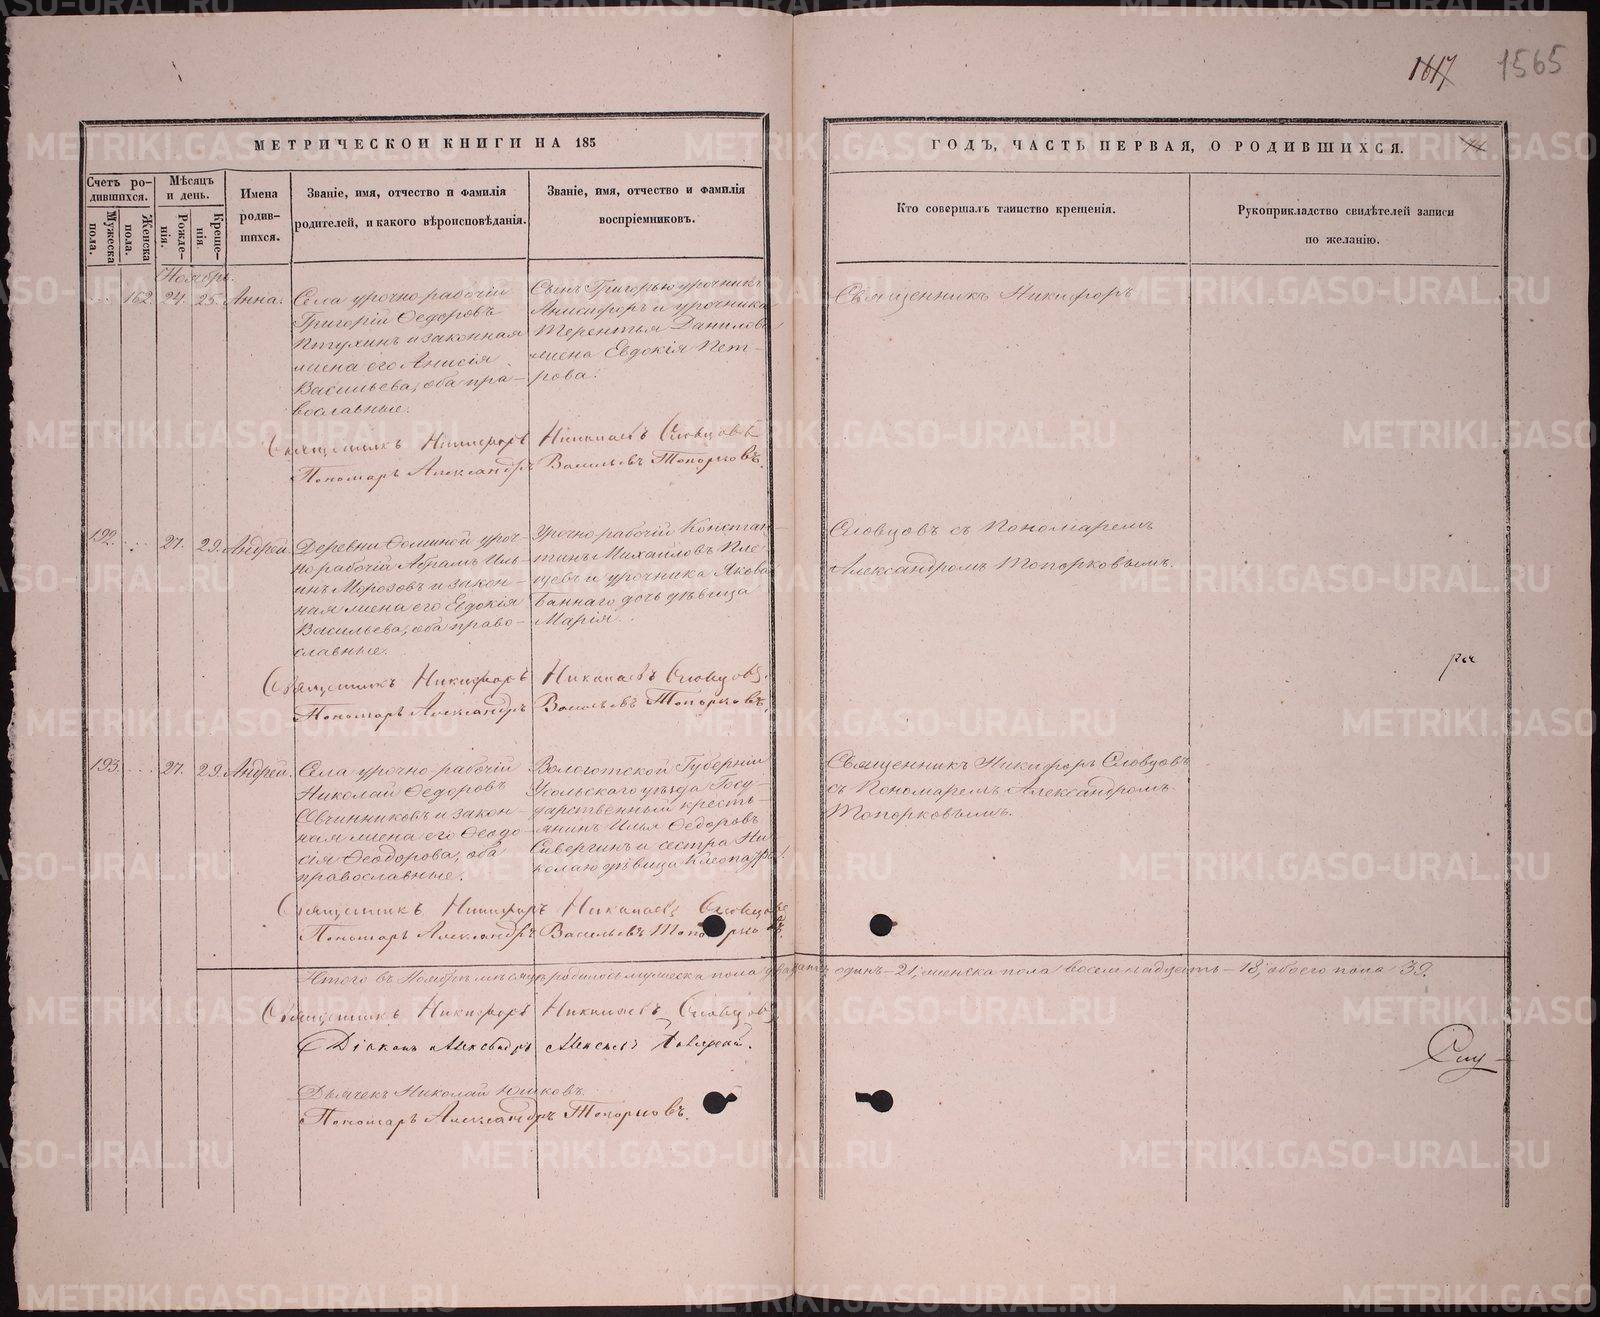 1617 1565
МЕТРИЧЕСКОЙ КНИГИ НА 185
ГОДЪ, ЧАСТЬ ПЕРВАЯ, О РОДИВШИХСЯ.
Счетъ родившихся.
Мужеска пола.
Женска пола.
Мѣсяцъ и день.
Рожденія.
Крещенія.
Имена родившихся.
Званіе, имя, отчество и фамилія
родителей, и какого вѣроисповѣданія.
Званіе, имя, отчество и фамилія
воспріемниковъ.
Кто совершалъ таинство крещенія.
Рукоприкладство свидѣтелей записи
по желанію.
Ноябрь.
162. 24. 25. Анна.
Села урочно рабочій
Григорій Ѳедоровъ
Птухинъ и законная
жена его Анисія
Васильева, оба пра-
вославные.
Сынъ Григорью урочникъ
Анисифоръ и урочника
Терентья Данилова
жена Евдокія Пет-
рова.
Священникъ Никифоръ
Священникъ Никифоръ Николаевъ Словцовъ
Пономарь Александръ Васильевъ Топорковъ.
192. 27. 29. Андрей.
Деревни Ѳоминой уроч-
но рабочій Абрамъ Иль-
инъ Морозовъ и закон-
ная жена его Евдокія
Васильева, оба право-
славные.
Урочно рабочій Констан-
тинъ Михайловъ Пле-
щевъ и урочника Якова
Баннаго дочь дѣвица
Марія.
Словцовъ съ Пономаремъ
Александромъ Топорковымъ.
Священникъ Никифоръ Николаевъ Словцовъ.
Пономарь Александръ Васильевъ Топорковъ.
193. 27. 29. Андрей.
Села урочно-рабочій
Николай Ѳедоровъ
Овчинниковъ и закон-
ная жена его Ѳеодо-
сія Ѳеодорова, оба
православные.
Вологотской Губерніи
Усольскаго уѣзда Госу-
дарственный кресть-
янинъ Илья Ѳедоровъ
Сивергинъ и сестра Ни-
колаю дѣвица Клеопатра.
Священникъ Никифоръ Словцовъ
съ Пономаремъ Александромъ
Топорковымъ.
Священникъ Никифоръ Николаевъ Словцовъ
Пономарь Александръ Васильевъ Топорковъ.
Итого въ Ноябрѣ мѣсяцѣ родилось мужеска пола двадцать одинъ-21, женска пола восемнадцать-18, обоего пола 39.
Священникъ Никифоръ Николаевъ Словцовъ
Діаконъ Александръ
Дьячекъ Николай Юшковъ.
Пономарь Александръ Топорковъ.
METRIKI.GASO-URAL.RU